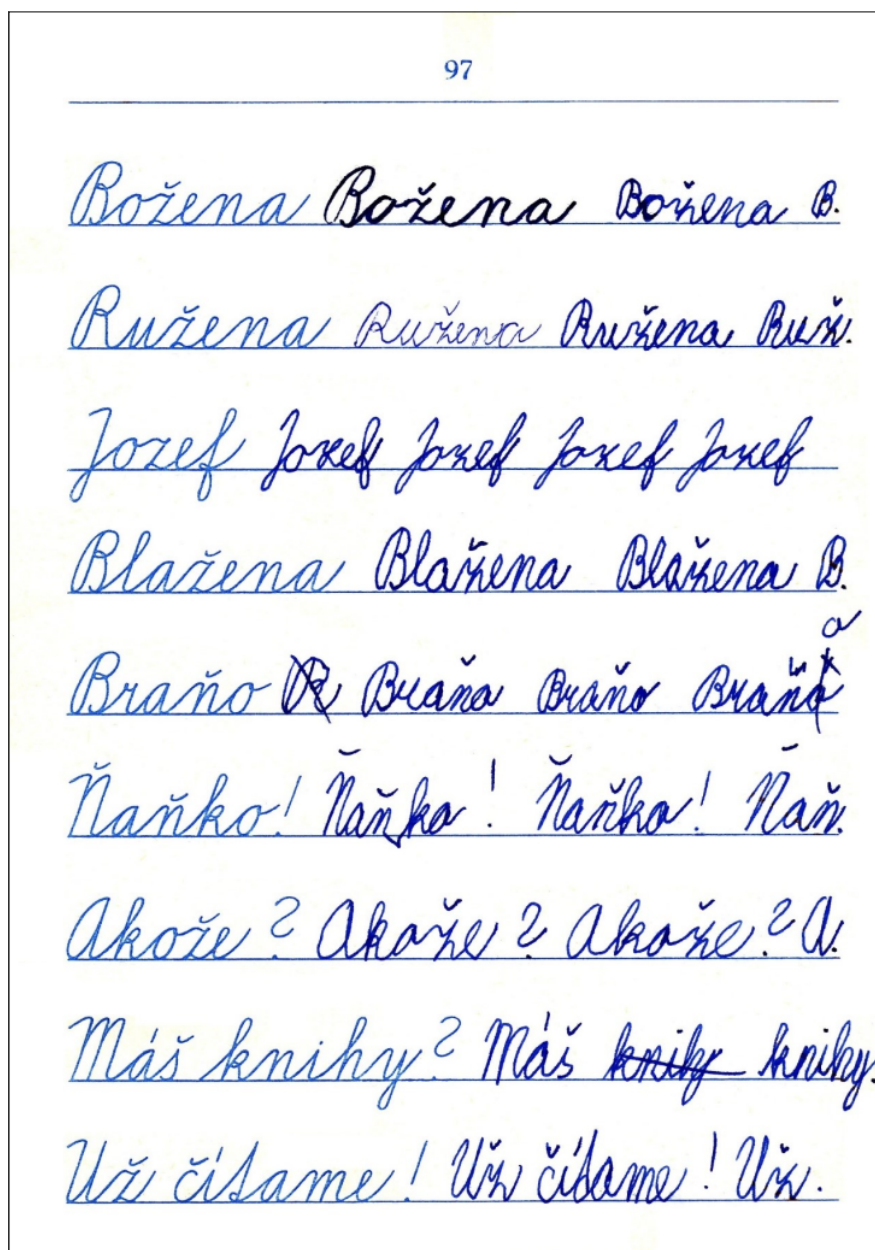 97
Božena Božena Božena B.
Ružena Ružena Ružena Ruž.
Jozef Jozef Jozef Jozef Jozef
Blažena Blažena Blažena B.
Braňo Braňa Braňo Braňo
Ňaňko! Ňaňko! Ňaňko! Ňaň.
Akože? Akože? Akože? A.
Máš knihy? Máš knihy knihy.
Už čítame! Už čítame! Už.